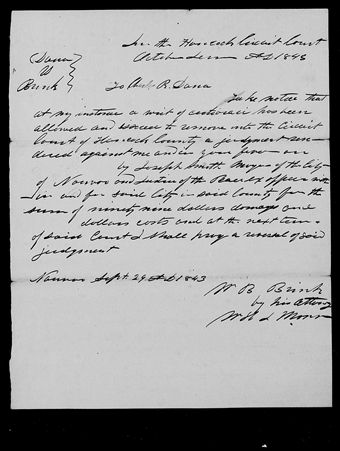 In the Hancock Circuit Court
October term AD 1843
(Dana
vs
Brink
To Chas R. Dana
Take notice that
at my instance a writ of certiorari has been
allowed and to remove into the Circuit
Court of Hancock County a judgment ren
dered against me and in your favor on
by Joseph Smith Mayor of the City
of Nauvoo and Justice of the Peace ex officio with
in and for said City in said County for the
sum of ninety nine dollars damage and
dollars costs and at the next term
of said Court I shall pray a reversal of said
judgment
Nauvoo Sept. 29 AD 1843
W B Brink
by his Attorney